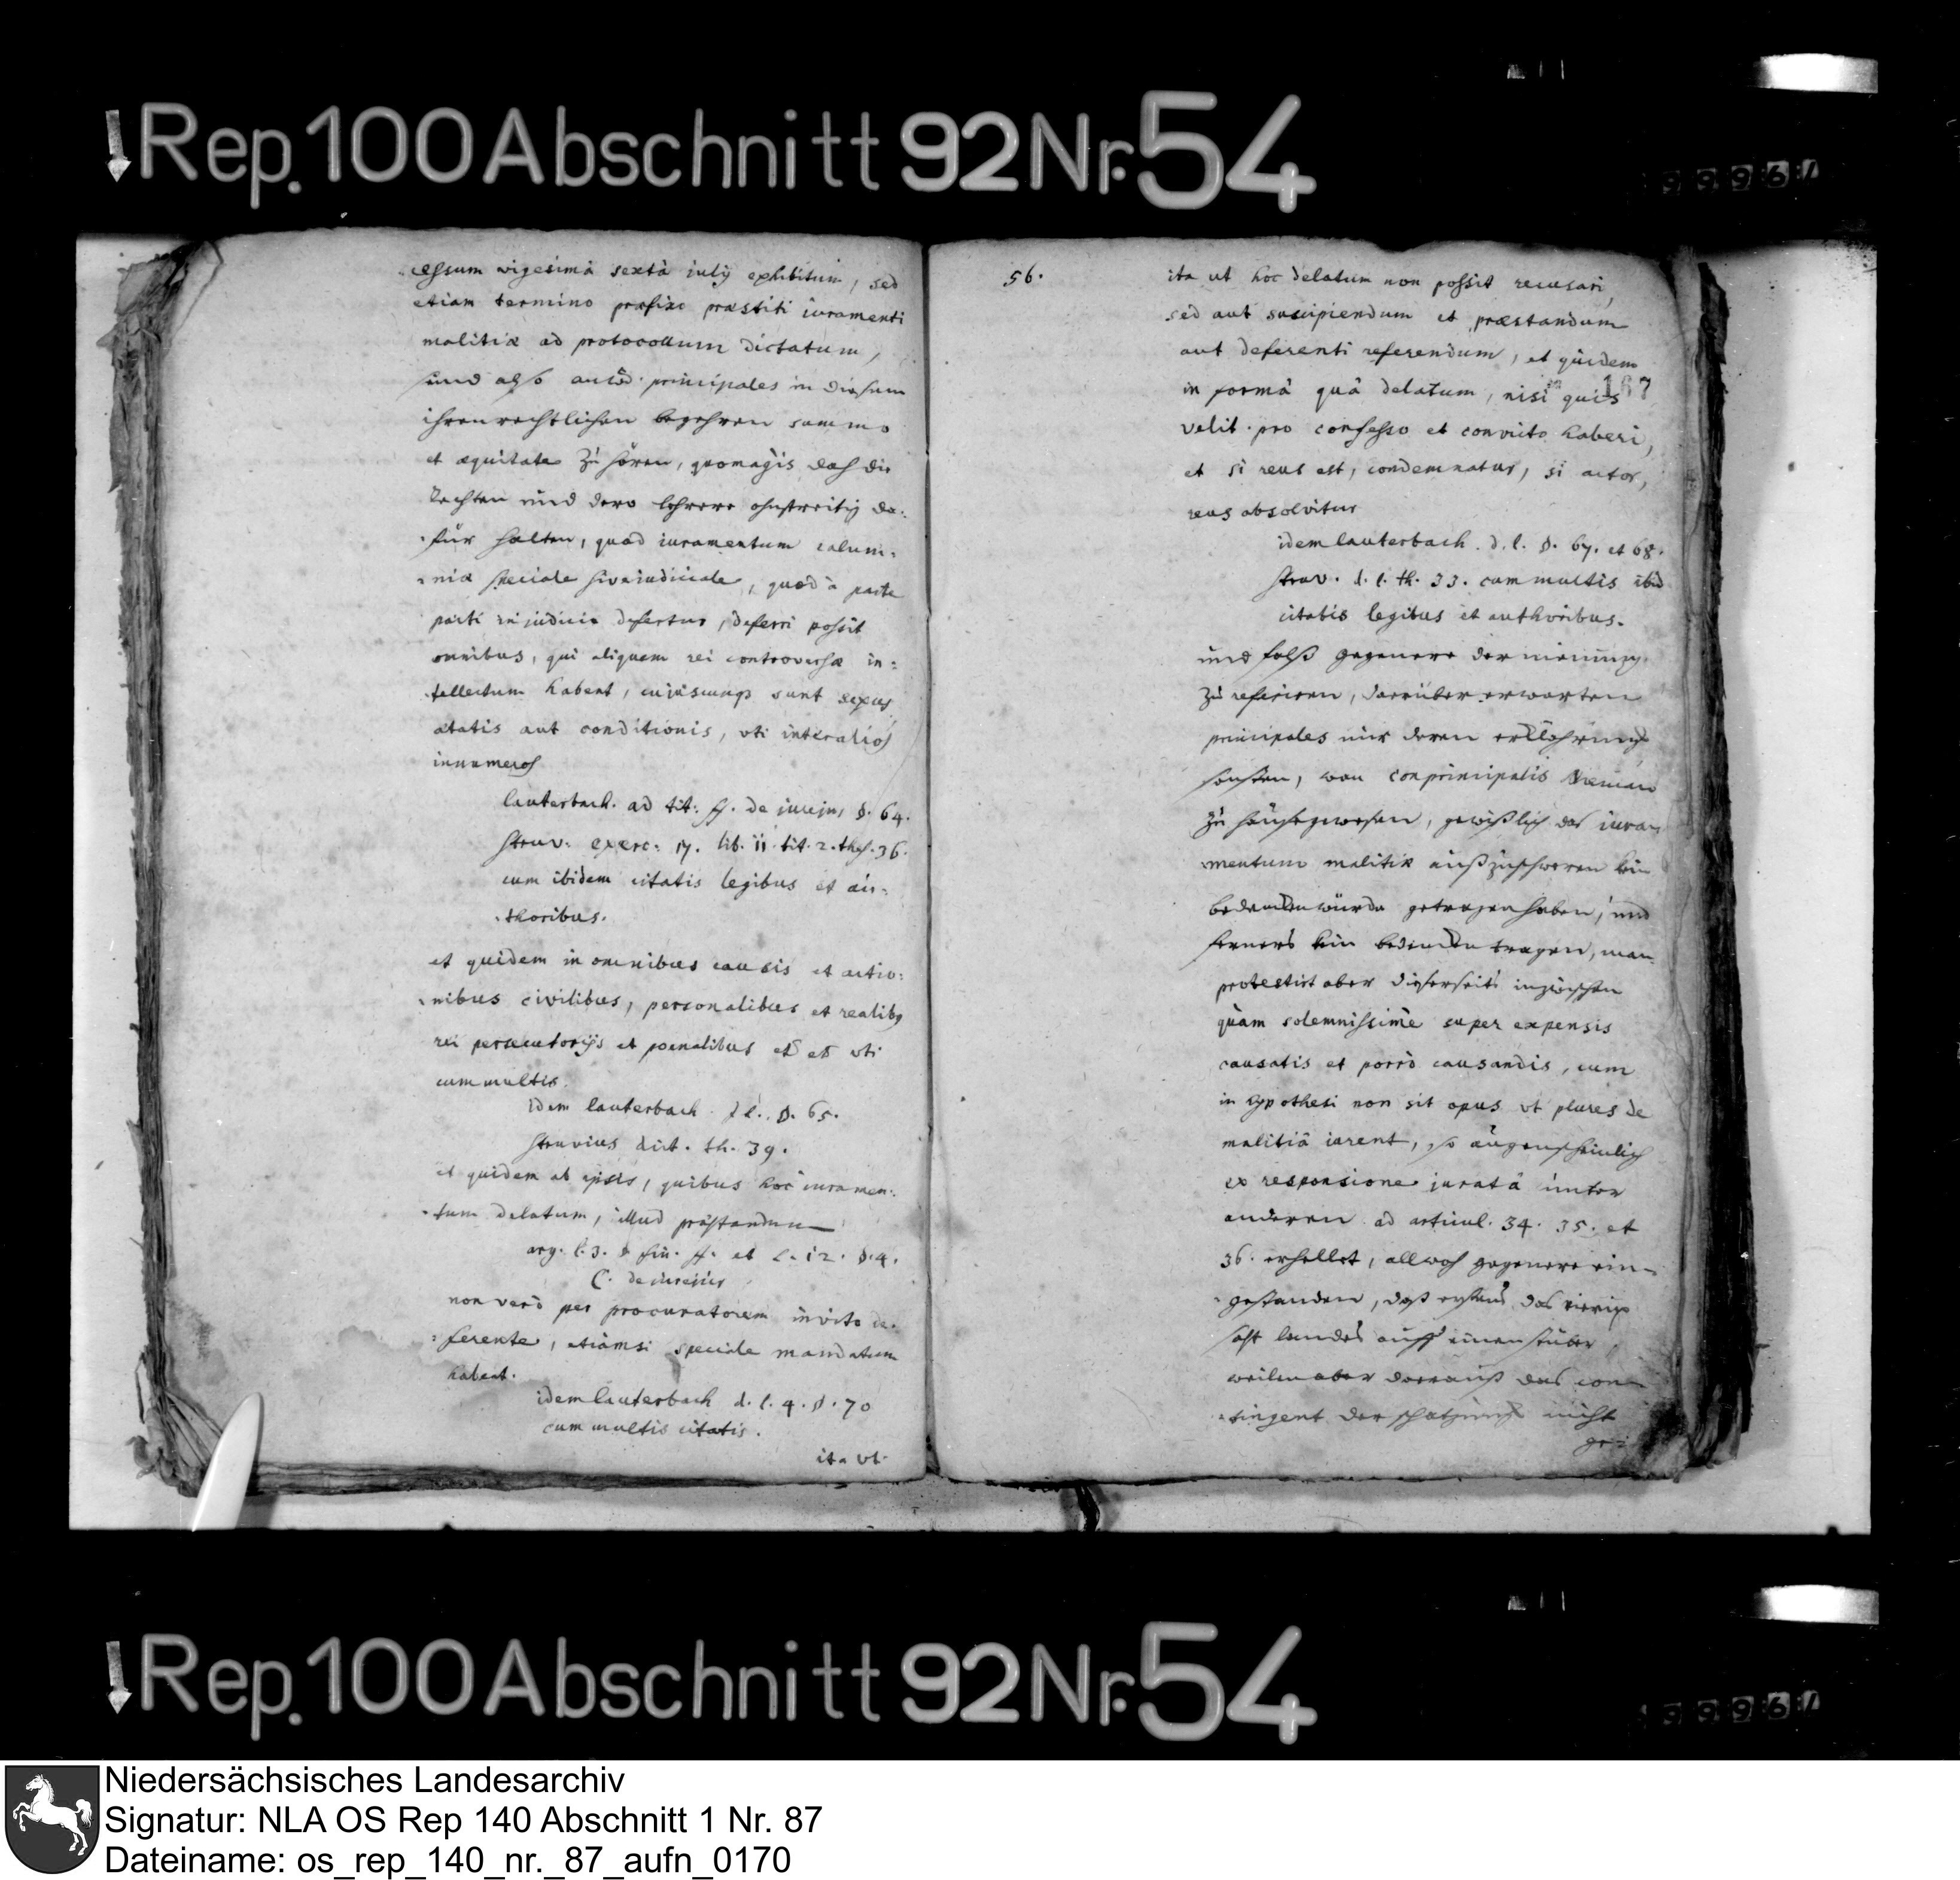 Rep. 100 Abschnitt 92 Nr. 54
99967
cessum vigesimâ sextâ julÿ exhibitum, sed
etiam termino præfixo præstiti iuramenti
malitiæ ad protocollum dictatum,
und also principales in diesem
ihren rechtlichen begehren summo
et æquitate zu hören, quomagis daß die
Rechten und dero lehrere ohnstreitig da-
für halten, quod iuramentum calum-
niæ speciale sive iudiciale, quod à parte
parti in judicio defertur, deferri possit
omnibus, qui aliquem rei controversæ in-
tellectum habent, cujuscunq sunt sexus
ætatis aut conditionis, uti inter alios
innumeros
lauterbach. ad tit: ff. de jurejur §. 64.
Struv. exerc: 17. lib. 12. tit. 2. thes. 36.
cum ibidem citatis legibus et au-
thoribus.
et quidem in omnibus causis et actio-
nibus civilibus, personalibus et realibq
rei persecutorÿs et poenalibus et et uti
cum multis
idem lauterbach d. l. §. 65.
Struvius dict. th. 39.
et quidem ab ipsis, quibus hoc iuramen-
tum delatum, illud præstandum
arg. l. 3. § fin. ff. et L. 12. §. 4.
C. de iurejur
non verò per procuratorem invito de-
ferente, etiamsi speciale mandatum
habeat.
idem lauterbach d. l. 4. §. 70
cum multis citatis.
ita ut
56.
167
ita ut hoc delatum non possit recusari,
sed aut suscipiendum et præstandum
aut deferenti referendum, et quidem
in formâ quâ delatum, nisi quis
velit pro confesso et convicto haberi,
et si reus est, condemnatur, si actor,
reus absolvitur
idem lauterbach. d. l. §. 67. et 68.
Struv. d. l. th. 33. cum multis ibid
citatis legibus et authoribus.
und falß gegenere der meinung
zu referiren, darüber erwarten
principales nur deren erklehrung
sonsten, wan conprincipalis
zu hause gewesen, gewißlich das iura-
mentum malitiæ außzuschweren kein
bedencken würde getragen haben, und
ferners kein bedencken tragen, man
protestirt aber dieserseits inzwischen
quam solemnissime super expensis
causatis et porrò causandis, cum
in hypothesi non sit opus ut plures de
malitiâ iurent, so augenscheinlich
ex responsione juratâ unter
anderen ad articul. 34. 35. et
36. erhellet, allwoh gegenere ein-
gestanden, daß erstens das vierige
saht landes auff einen stüber,
weilen aber darauß das con-
tingent der schatzung nicht
ge-
Rep. 100 Abschnitt 92 Nr. 54
99967
Niedersächsisches Landesarchiv
Signatur: NLA OS Rep 140 Abschnitt 1 Nr. 87
Dateiname: os_rep_140_nr._87_aufn_0170